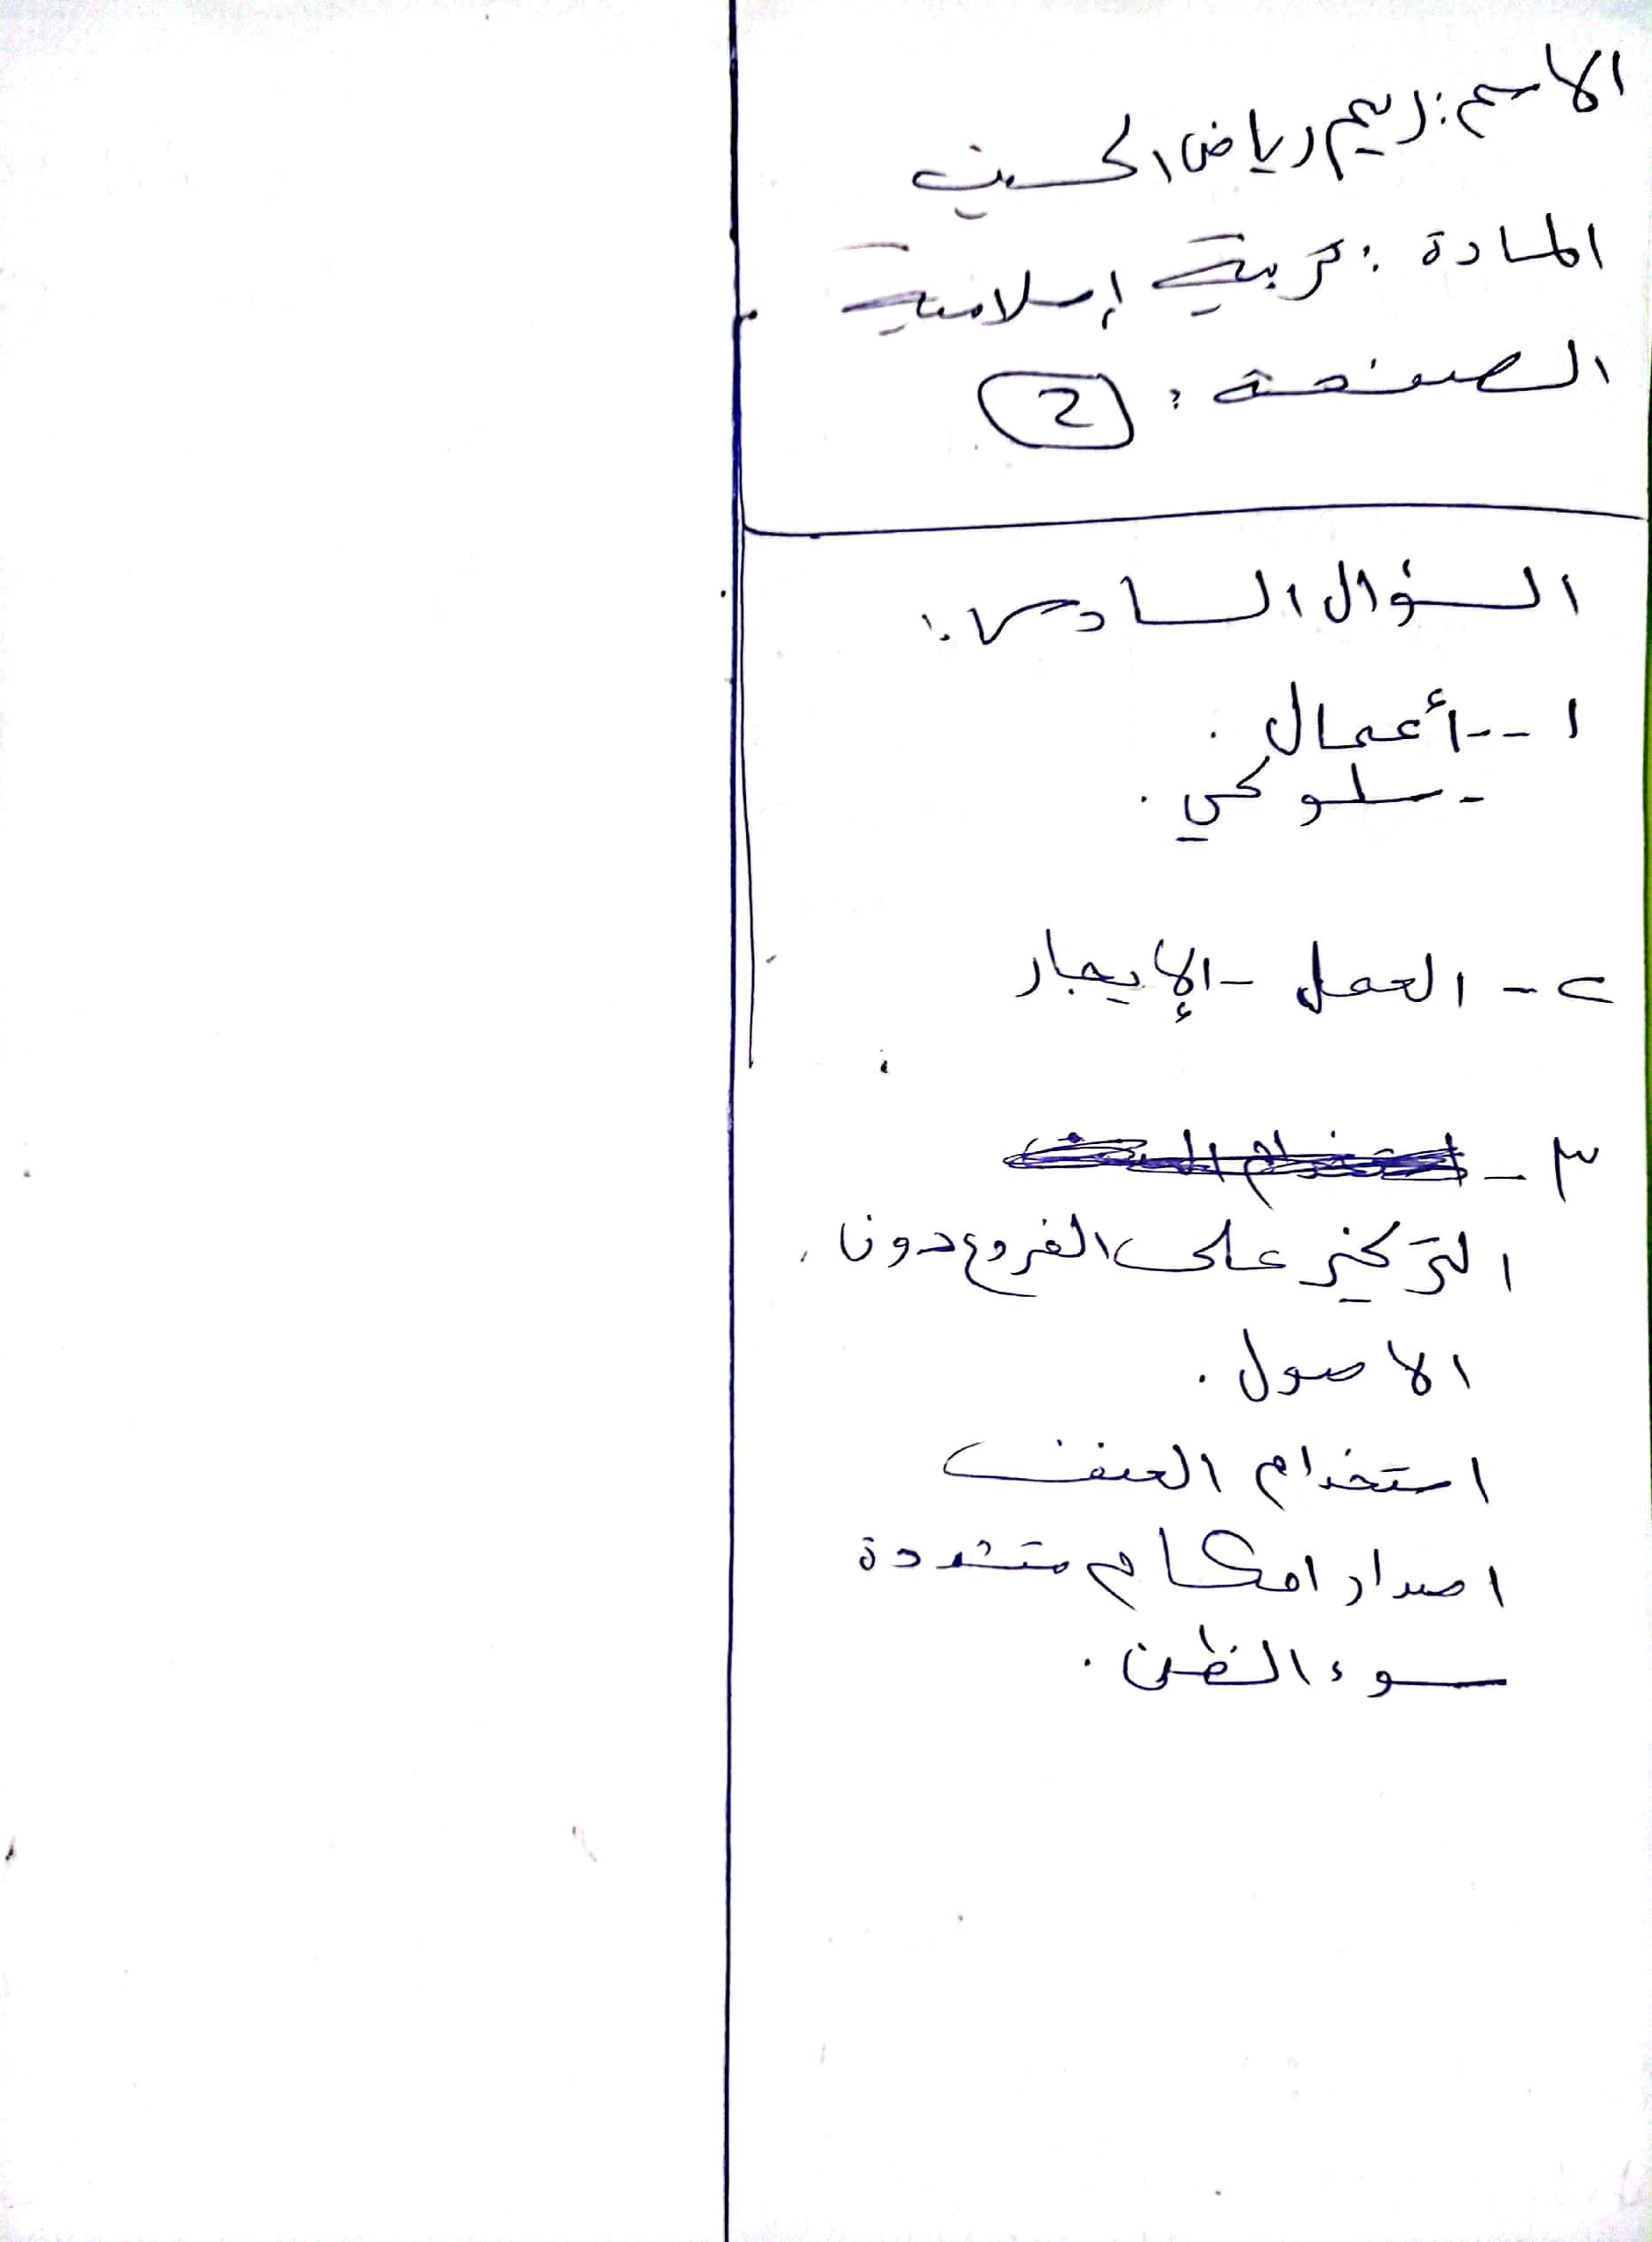 الاسم: ريم رياض الحسين
المادة: تربية إسلامية
الصفحة: 2
السؤال السادس:
١- - أعمال.
- سلوكي.
٢- العمل - الإيجار
٣-
التركيز على الفروع دون
الاصول.
استخدام العنف
اصدار احكام متشددة
سوء الظن.